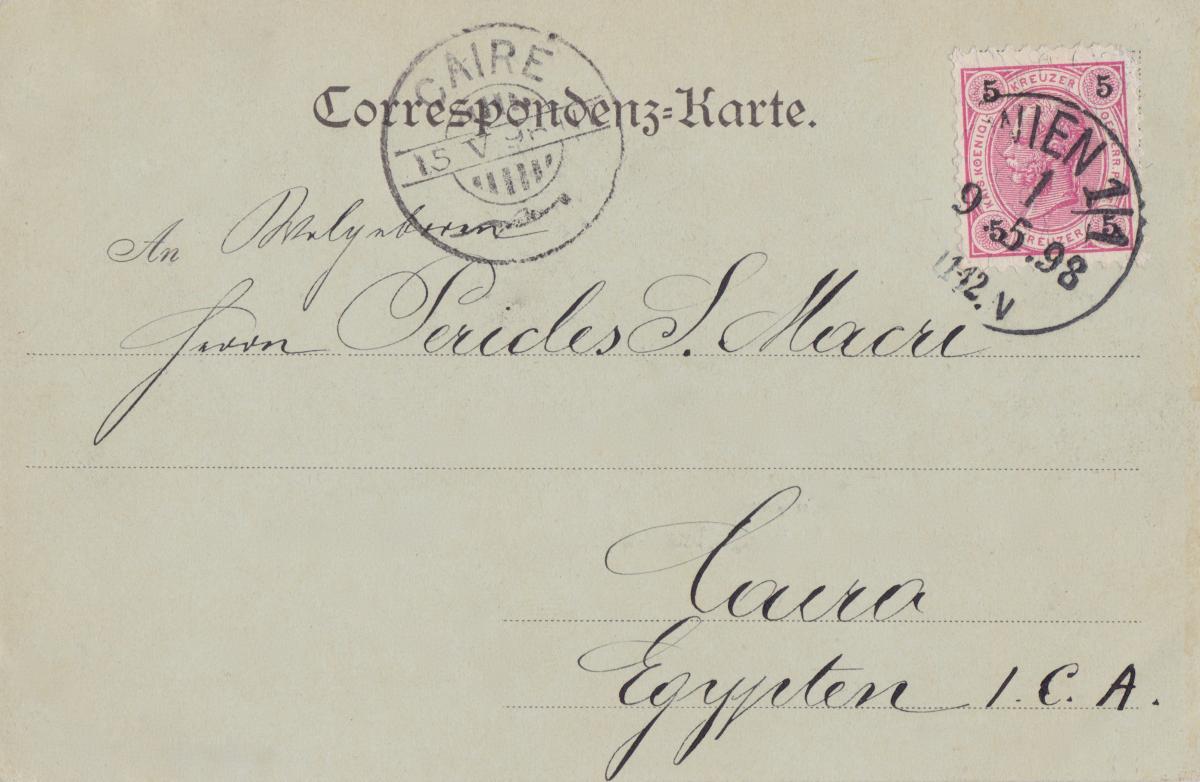 Correspondenz-Karte.
CAIRE
15 V 98
5 KREUZER 5
KAIS KOENIGL OESTERR
5 KREUZER 5
WIEN 1/1
1
9 5.98
11-12.N
An Wolgeboren
Herrn Pericles S. Macri
Cairo
Egypten 1. C. A.